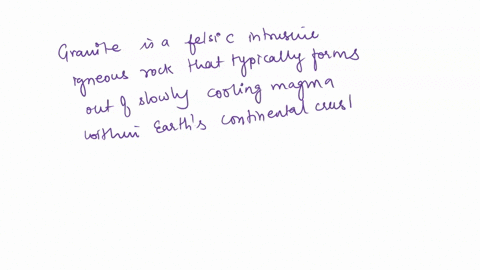 Granite is a felsic intrusive
igneous rock that typically forms
out of slowly cooling magma
within Earth's continental crust